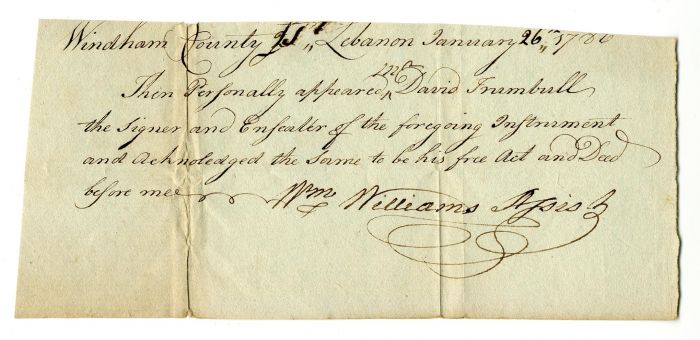 Windham County Ss,, Lebanon January 26,,th 1786
Then Personally appeared ^Mr David Trumbull
the Signer and Ensealer of the foregoing Instrument
and Acknoledged the Same to be his free Act and Deed
before me Wm Williams Assist